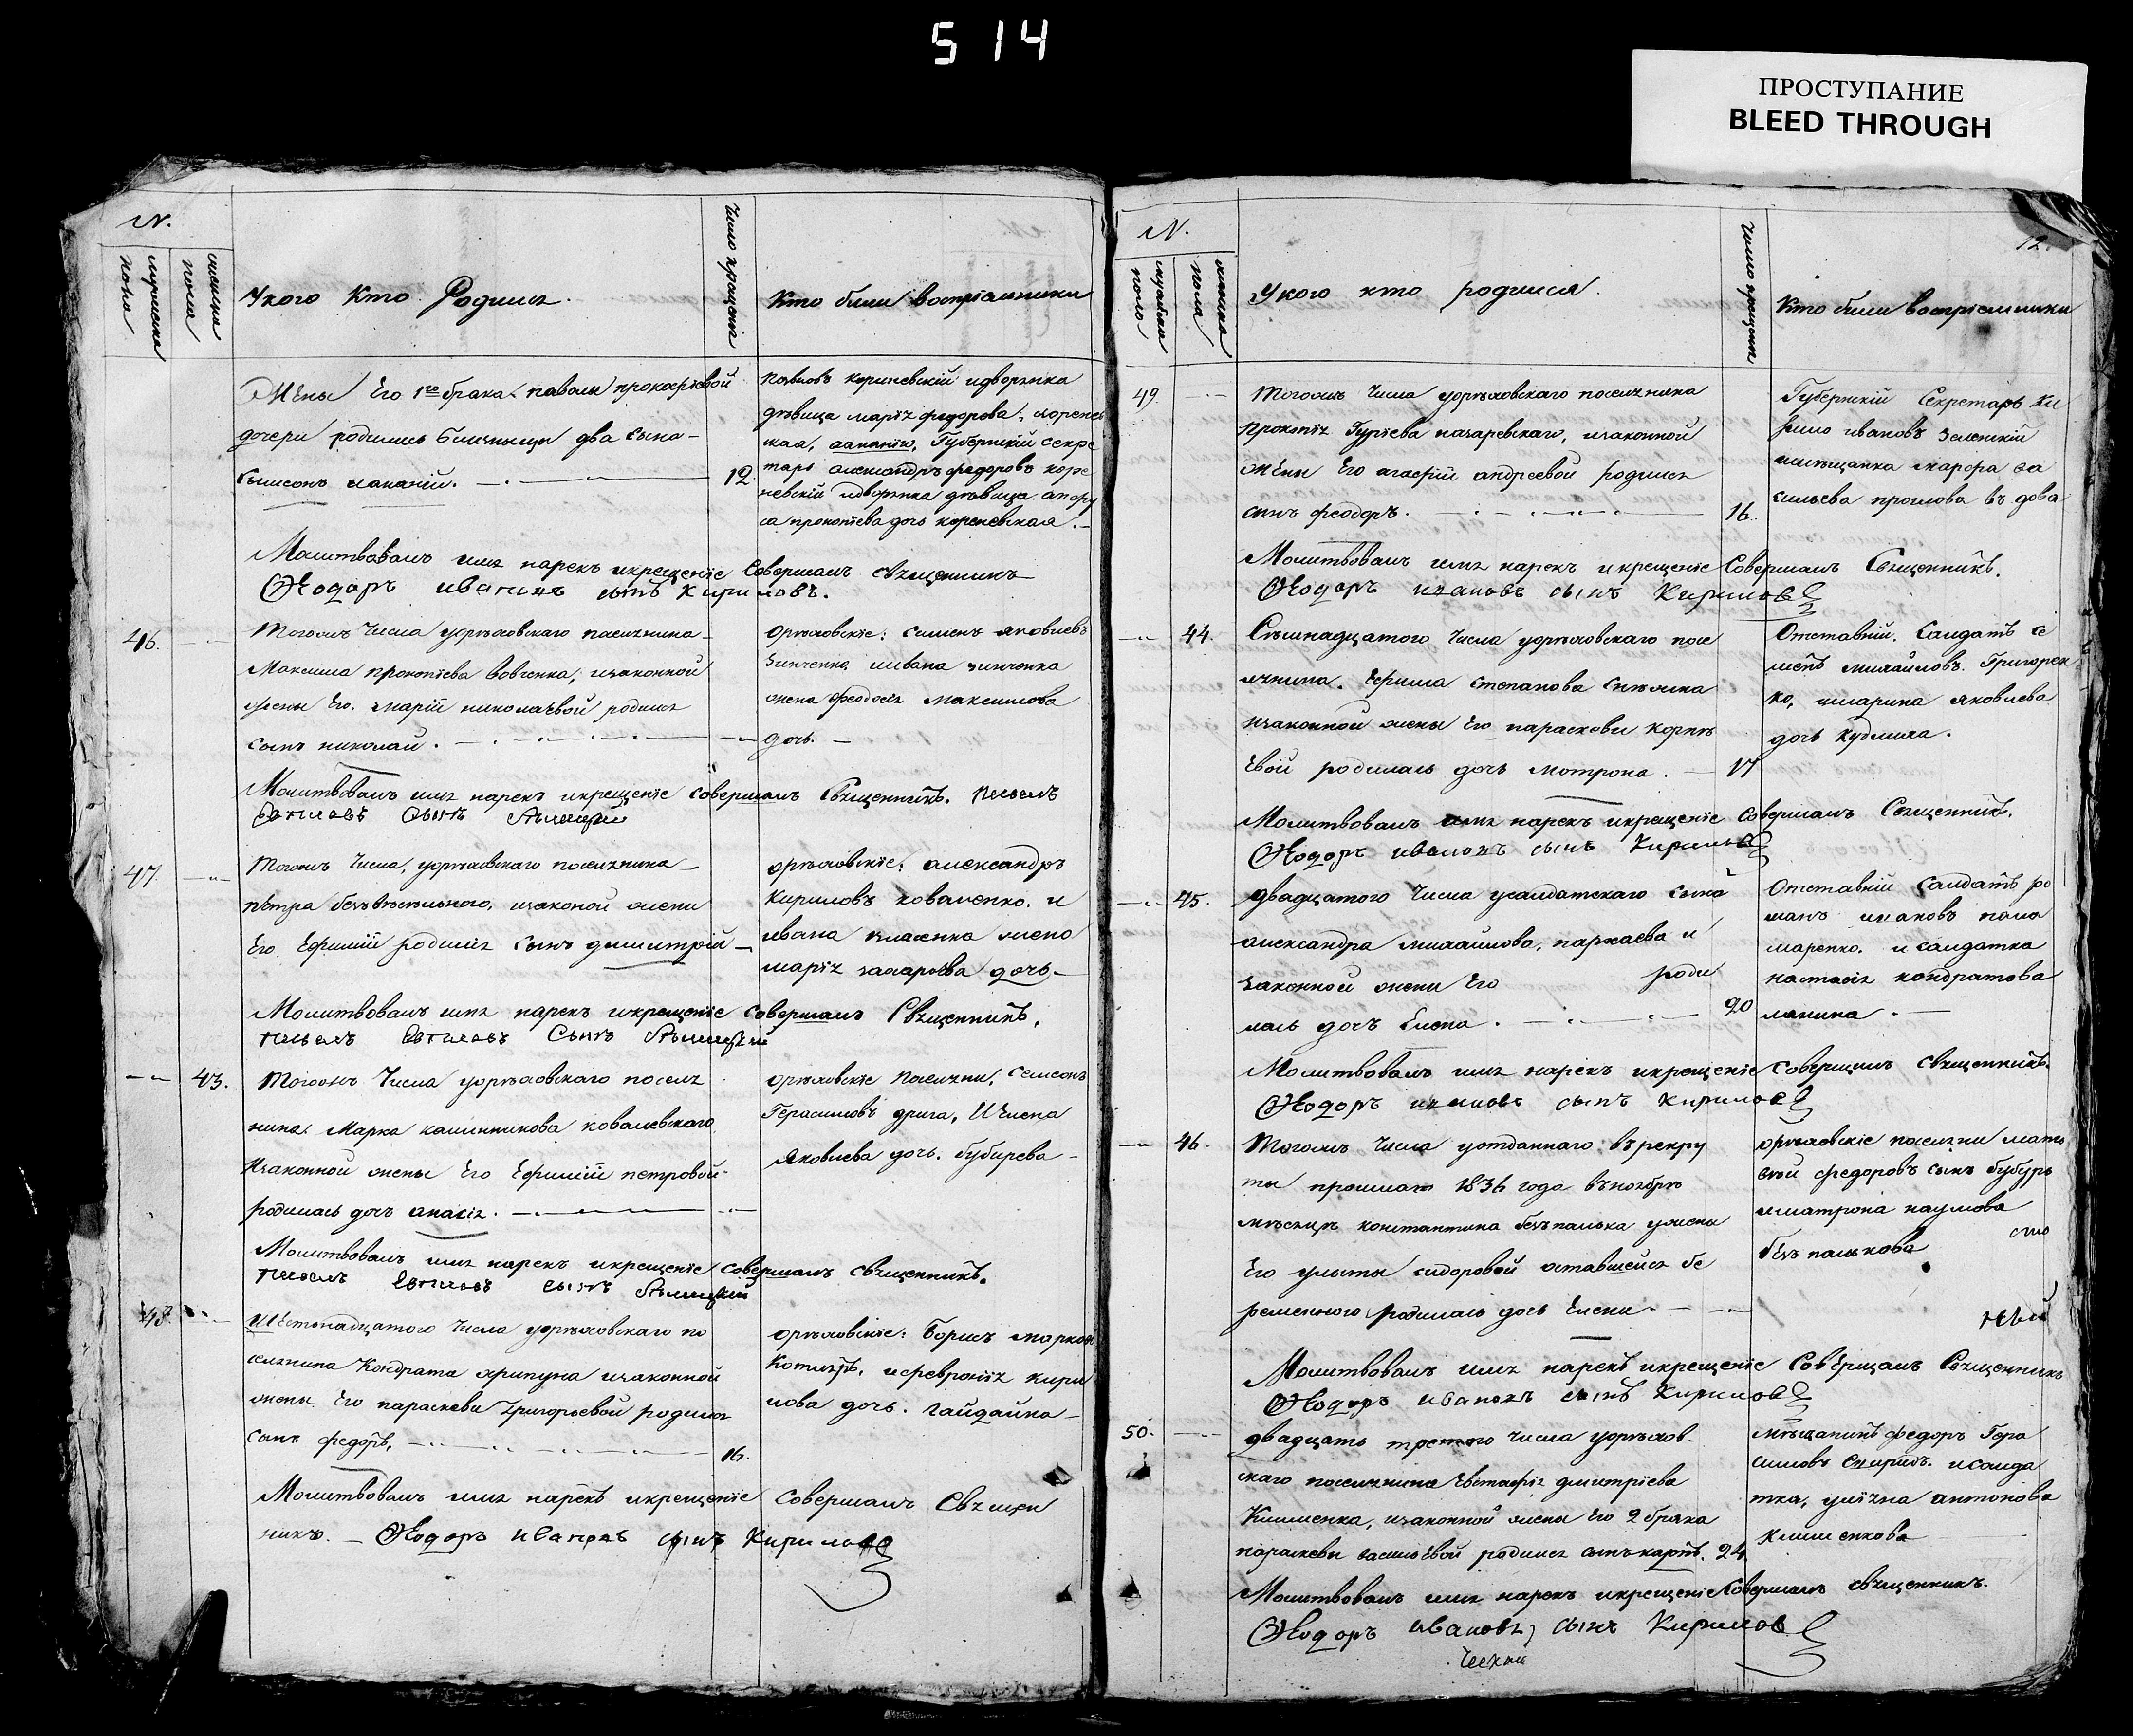 514
ПРОСТУПАНИЕ
BLEED THROUGH
N.
мужеска пола
женска пола
Укого Кто Родился.
Число крещенія
Кто были воспріемники
Жены Его 1го брака павлы прокофіевой
дочери родились близнецы два сына
Самсонъ иананій. 12.
корниевскій идворянка
дѣвица марія федорова,
ананію, Губернскій секре
тарь александръ федоровъ коре
невскій идворянка дѣвица
са прокопіева дочь кореневская.
Молитвовалъ имя нарекъ икрещеніе Совершалъ священникъ
Ѳеодоръ ивановъ сынъ Кириловъ.
46.
Тогожъ Числа уорѣховскаго поселянина
Максима прокопіева вовченка, изаконной
жены Его. марій николаевой родился
сынъ николай.
Орѣховскіе: семенъ яковлевъ
зинченко иивана зинченка
жена феодосія максимова
дочь.
Молитвовалъ имя нарекъ икрещеніе совершалъ Священникъ.
47.
Тогожъ Числа, уорѣховскаго поселянина
петра изаконой жены
Его Ефимій родился сынъ димитрій
орѣховскіе: александръ
Кириловъ коваленко. и
ивана власенка жена
марія захарьева дочь
Молитвовалъ имя нарекъ икрещеніе совершалъ Священникъ.
43.
Тогожъ Числа уорѣховскаго поселя
нина Марка калинникова ковалевскаго
Изаконной жены Его Ефимій петровой
родилась дочь анасія.
орѣховскіе поселяни, Самсонъ
Герасимовъ дрига, Иелена
Яковлева дочь. бубирева
Молитвовалъ имя нарекъ икрещеніе совершалъ священникъ.
48.
Шестонадцатого Числа уорѣховскаго по
селянина Кондрата хрипуна изаконной
жены Его параскеви григорьевой родился
сынъ федоръ. 16.
орѣховскіе: Борисъ марковъ
Котляръ, ифевронія кири
лова дочь. гайдайка
Молитвовалъ имя нарекъ икрещеніе Совершалъ Священ
никъ. Ѳеодоръ ивановъ сынъ Кириловъ
12.
N.
мужеска пола
женска пола
Укого кто родился.
Число крещенія
Кто были воспріемники
49.
Тогожъ Числа уорѣховскаго поселянина
Прокопія Гуріева назаревскаго, изаконной
жены Его агафій андреевой родился
сынъ феодоръ. 16.
Губернскій Секретарь
ивановъ Зеленскій
имѣщанка марфа ва
сильева
Молитвовалъ имя нарекъ икрещеніе Совершалъ Священникъ.
Ѳеодоръ ивановъ сынъ Кириловъ
44.
Семнадцатого Числа уорѣховскаго посе
лянина. Ефима степанова
изаконной жены Его параскови корнѣ
евой родилась дочь мотрона. 17
Отставній. Салдатъ се
менъ михайловъ. Григорен
ко, имарина яковлева
дочь кудлиха.
Молитвовалъ имя нарекъ икрещеніе Совершалъ Священникъ.
Ѳеодоръ ивановъ сынъ Кириловъ
45.
двадцатого Числа усалдатскаго сына
александра михайлова, пархаева и
законной жены Его роди
лась дочь Елена. 20
Отставній салдатъ ро
манъ ивановъ пона
маренко. и салдатка
настасія кондратова
ланина.
Молитвовалъ имя нарекъ икрещеніе Совершалъ священникъ.
Ѳеодоръ ивановъ сынъ кириловъ
46.
Тогожъ Числа уотданнаго въ рекру
ты прошлаго 1836 года въноябрѣ
мѣсяцѣ константина безпалька ужены
Его улиты сидоровой оставшейся бе
ременною родилась дочь Елена.
орѣховскіе поселяни мат
вѣй федоровъ сынъ бубырь
иматрона наумова
безпалькова
Молитвовалъ имя нарекъ икрещеніе Совершалъ Священникъ
Ѳеодоръ ивановъ сынъ Кириловъ
50.
двадцать третяго Числа уорѣхов
скаго поселянина Евстафія дмитріева
Клименка, изаконной жены Его 2 брака
параскевы васильевой родился сынъ карпъ. 24.
мѣщанинъ федоръ Гера
симовъ исалда
тка, уліяна антонова
клименкова
Молитвовалъ имя нарекъ икрещеніе Совершалъ священникъ.
Ѳеодоръ ивановъ сынъ Кириловъ